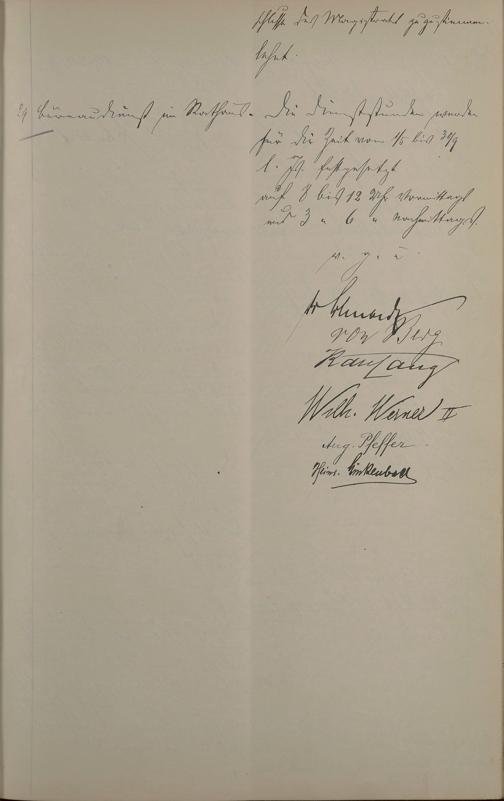 schlusse des Magistrats zuzustimmen.
lehnt.
29 Büreaudienst im Rathaus. Die Dienststunden werden
für die Zeit vom 1/5 bis 30/9
l. Js. festgesetzt
auf 8 bis 12 Uhr Vormittags
und 3 " 6 " Nachmittags.
v. g. u.
von Berg
Wilh. Werner II
Aug. Pfeffer.
Heinr. Linkenbach